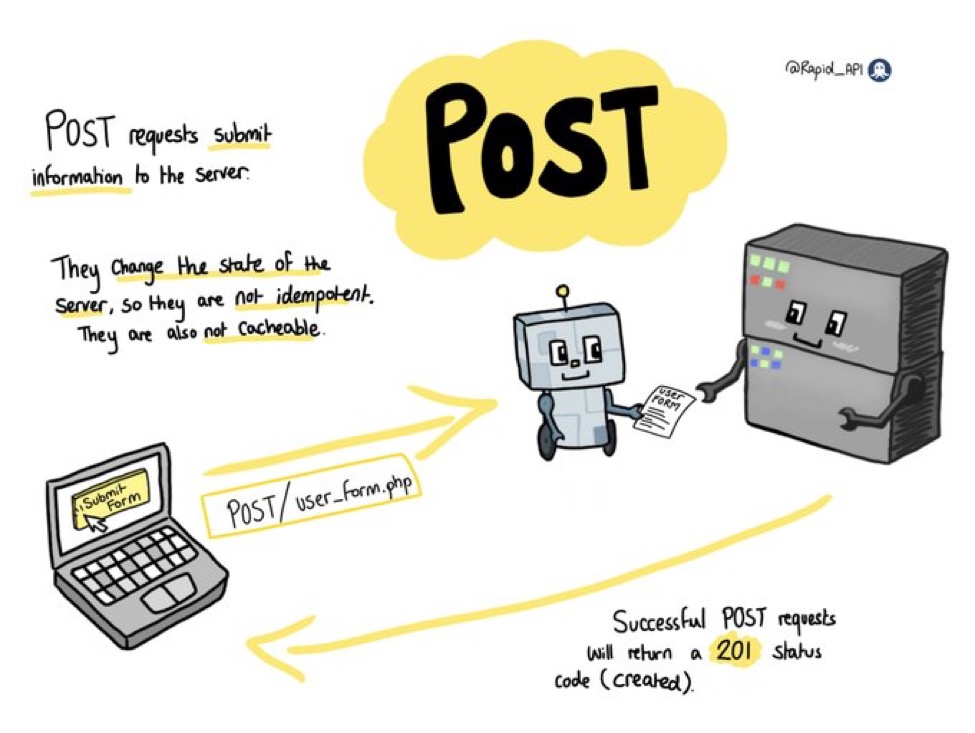 @Rapid_API
POST
POST requests submit
information to the server.
They change the state of the
server, so they are not idempotent.
They are also not cacheable.
user
FORM
Submit
Form
POST/user_form.php
Successful POST requests
will return a 201 status
code (created).